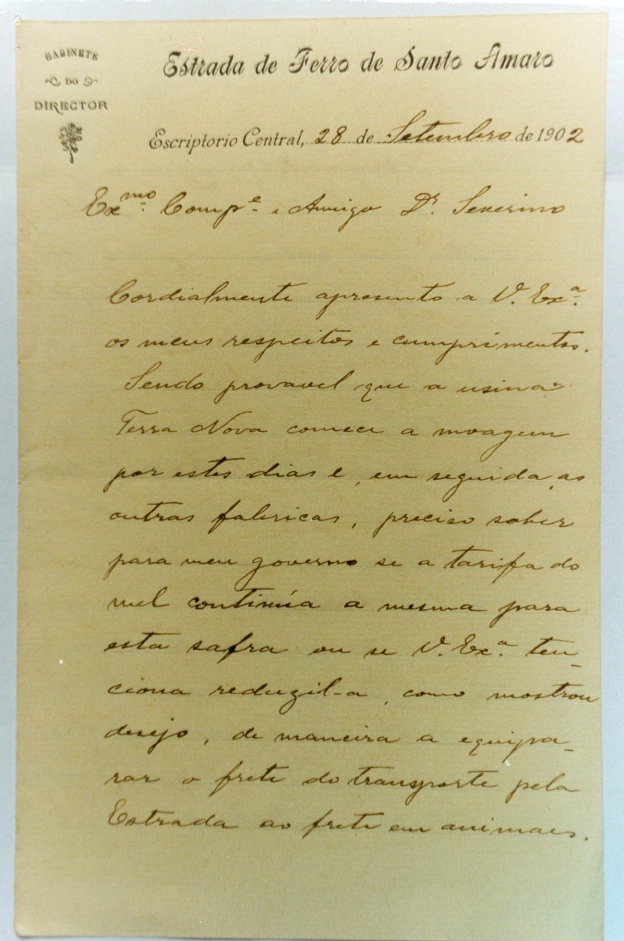 GABINETE
DO
DIRECTOR
Estrada de Ferro de Santo Amaro
Escriptorio Central, 28 de Setembro de 1902
Exmo. Compe. e Amigo Dr. Severino
Cordialmente apresento a V. Exa.
os meus respeitos e cumprimentos.
Sendo provavel que a usina
Terra Nova comece a moagem
por estes dias e, em seguida, as
outras fabricas, preciso saber
para meu governo se a tarifa do
mel continúa a mesma para
esta safra ou se V. Exa. ten-
ciona reduzil-a, como mostrou
desejo, de maneira a equipa-
rar o frete do transporte pela
Estrada ao frete em animaes.